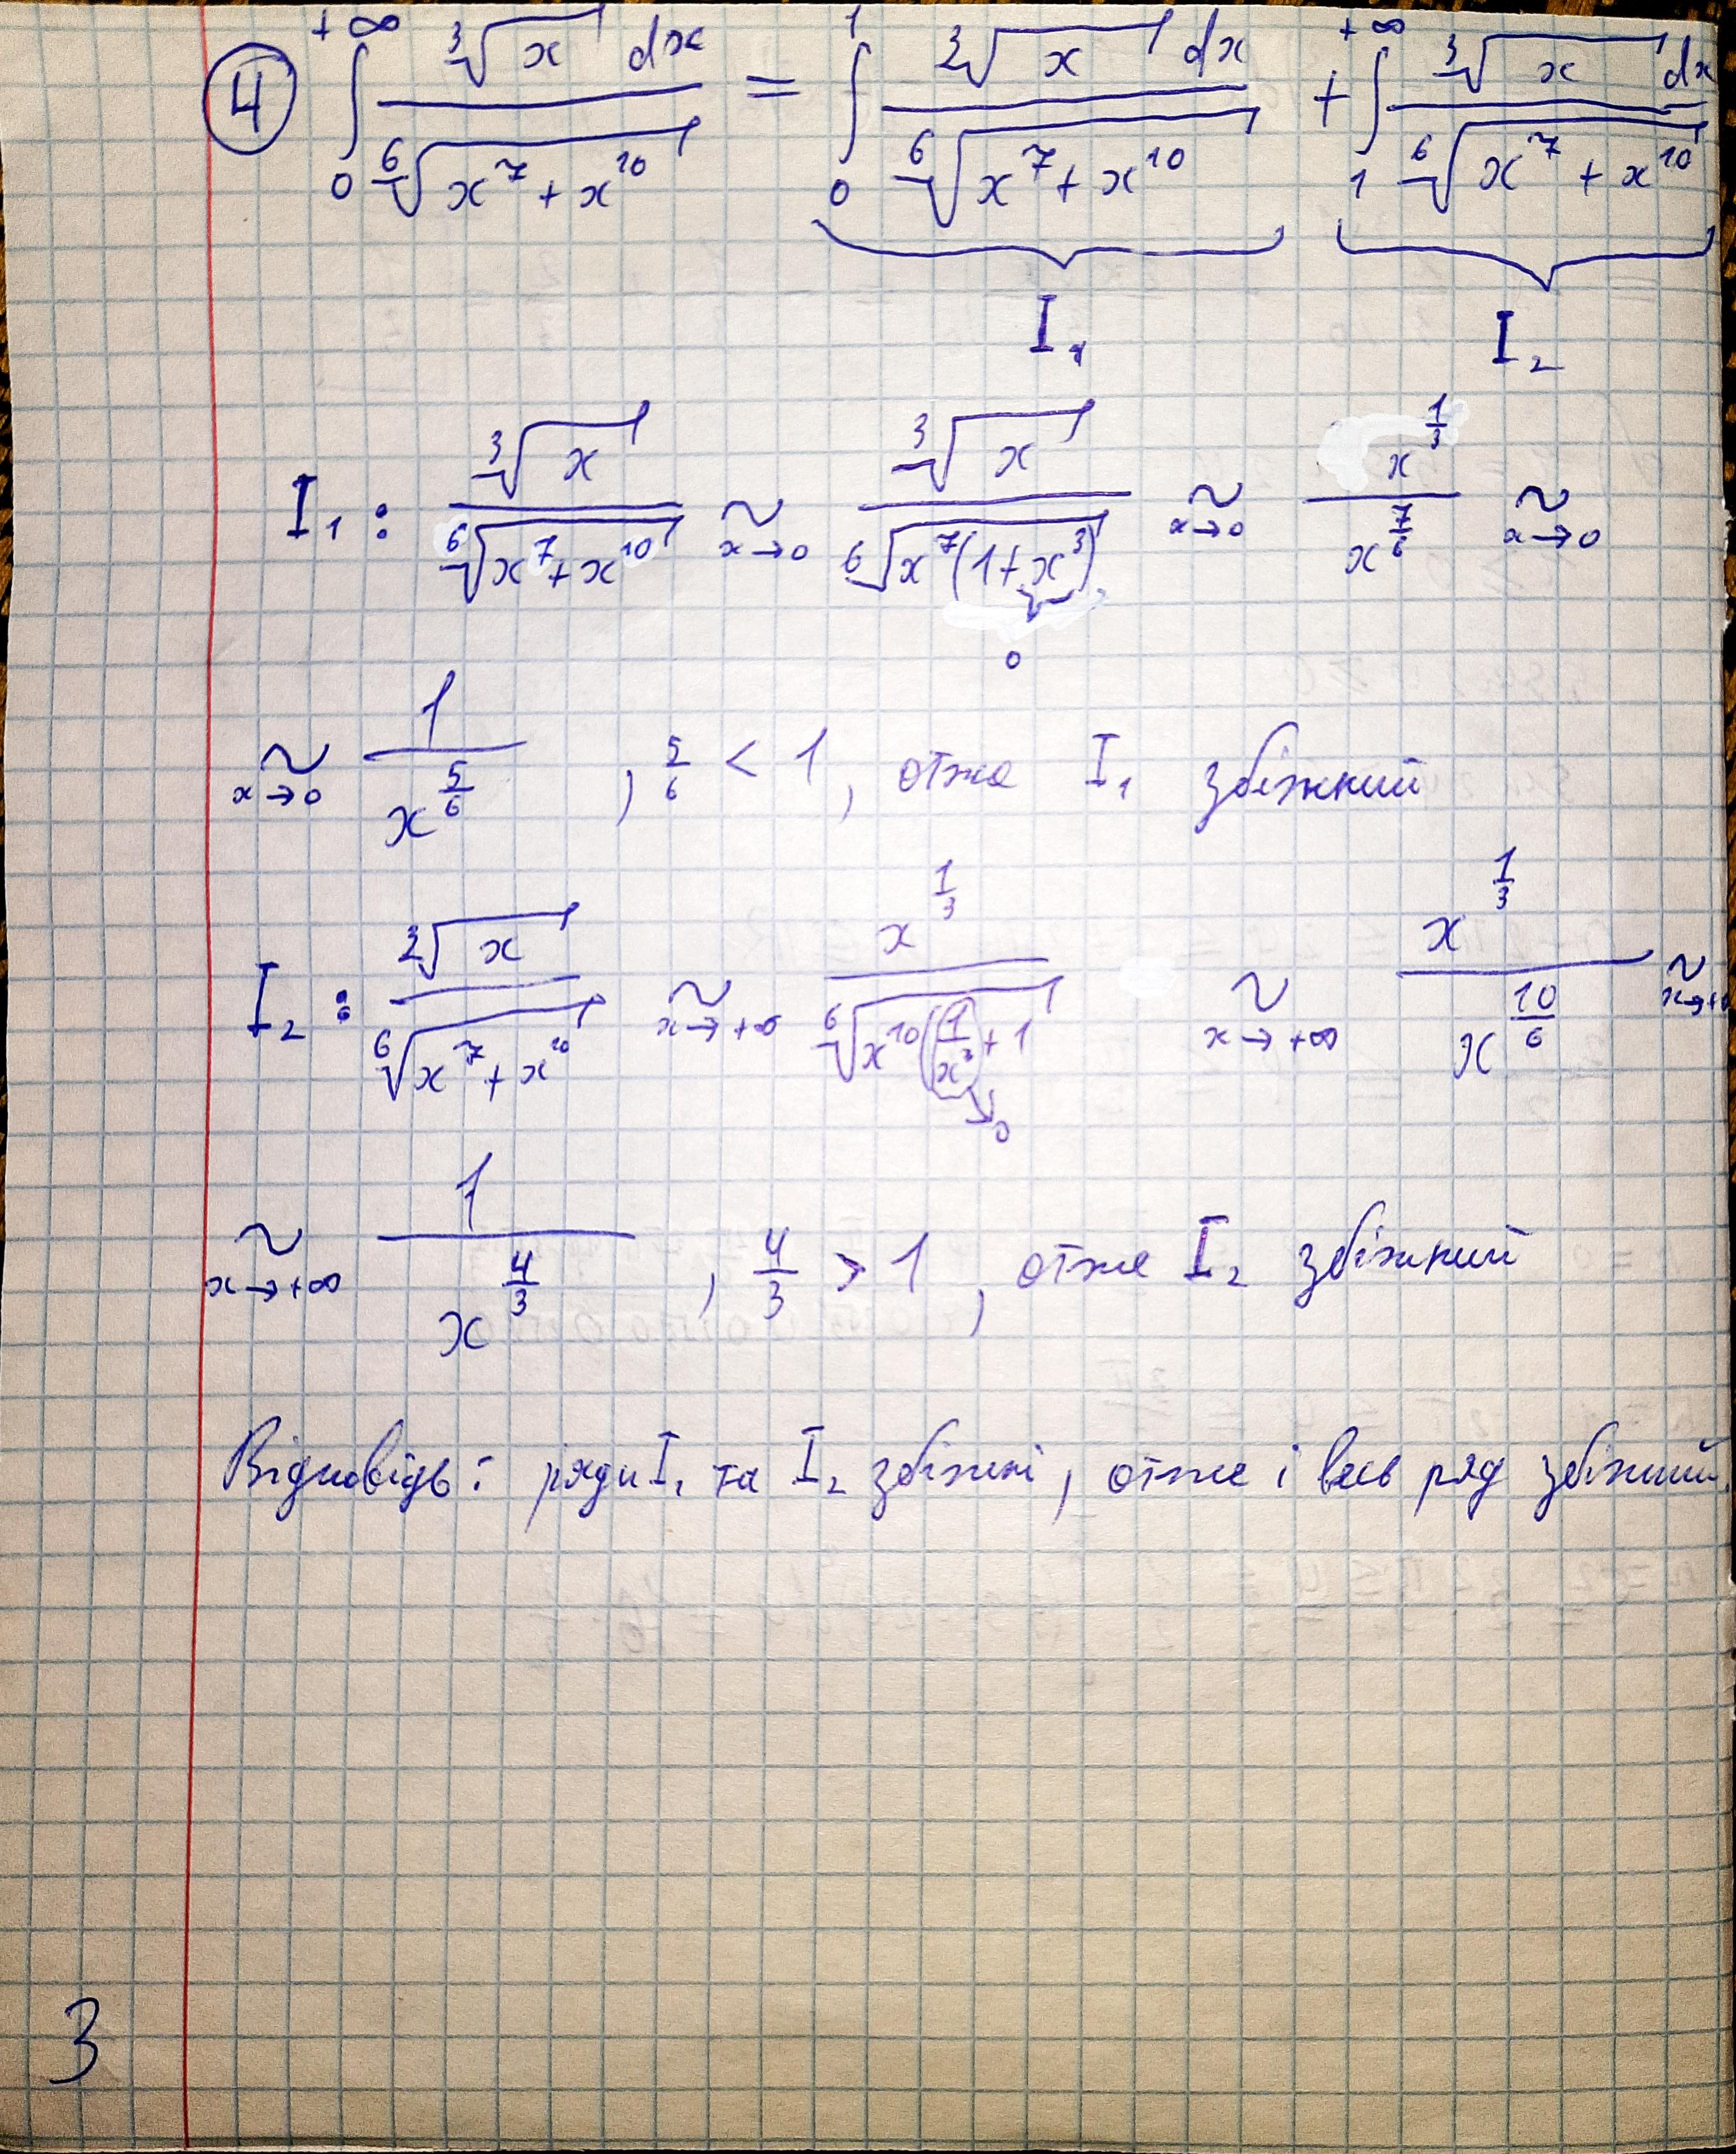 ④ ∫₀^{+∞} ∛x dx / ⁶√(x⁷ + x¹⁰) = ∫₀¹ ∛x dx / ⁶√(x⁷ + x¹⁰) + ∫₁^{+∞} ∛x dx / ⁶√(x⁷ + x¹⁰)
I₁ I₂
I₁ : ∛x / ⁶√(x⁷ + x¹⁰) ~_{x→0} ∛x / ⁶√(x⁷(1 + x³)) ~_{x→0} x^{1/3} / x^{7/6} ~_{x→0}
0
~_{x→0} 1 / x^{5/6} , 5/6 < 1, отже I₁ збіжний
I₂ : ∛x / ⁶√(x⁷ + x¹⁰) ~_{x→+∞} x^{1/3} / ⁶√(x¹⁰(1/x³ + 1 ~_{x→+∞} x^{1/3} / x^{10/6} ~_{x→+∞}
0
~_{x→+∞} 1 / x^{4/3} , 4/3 > 1, отже I₂ збіжний
Відповідь: ряди I₁ та I₂ збіжні, отже і весь ряд збіжний.
3